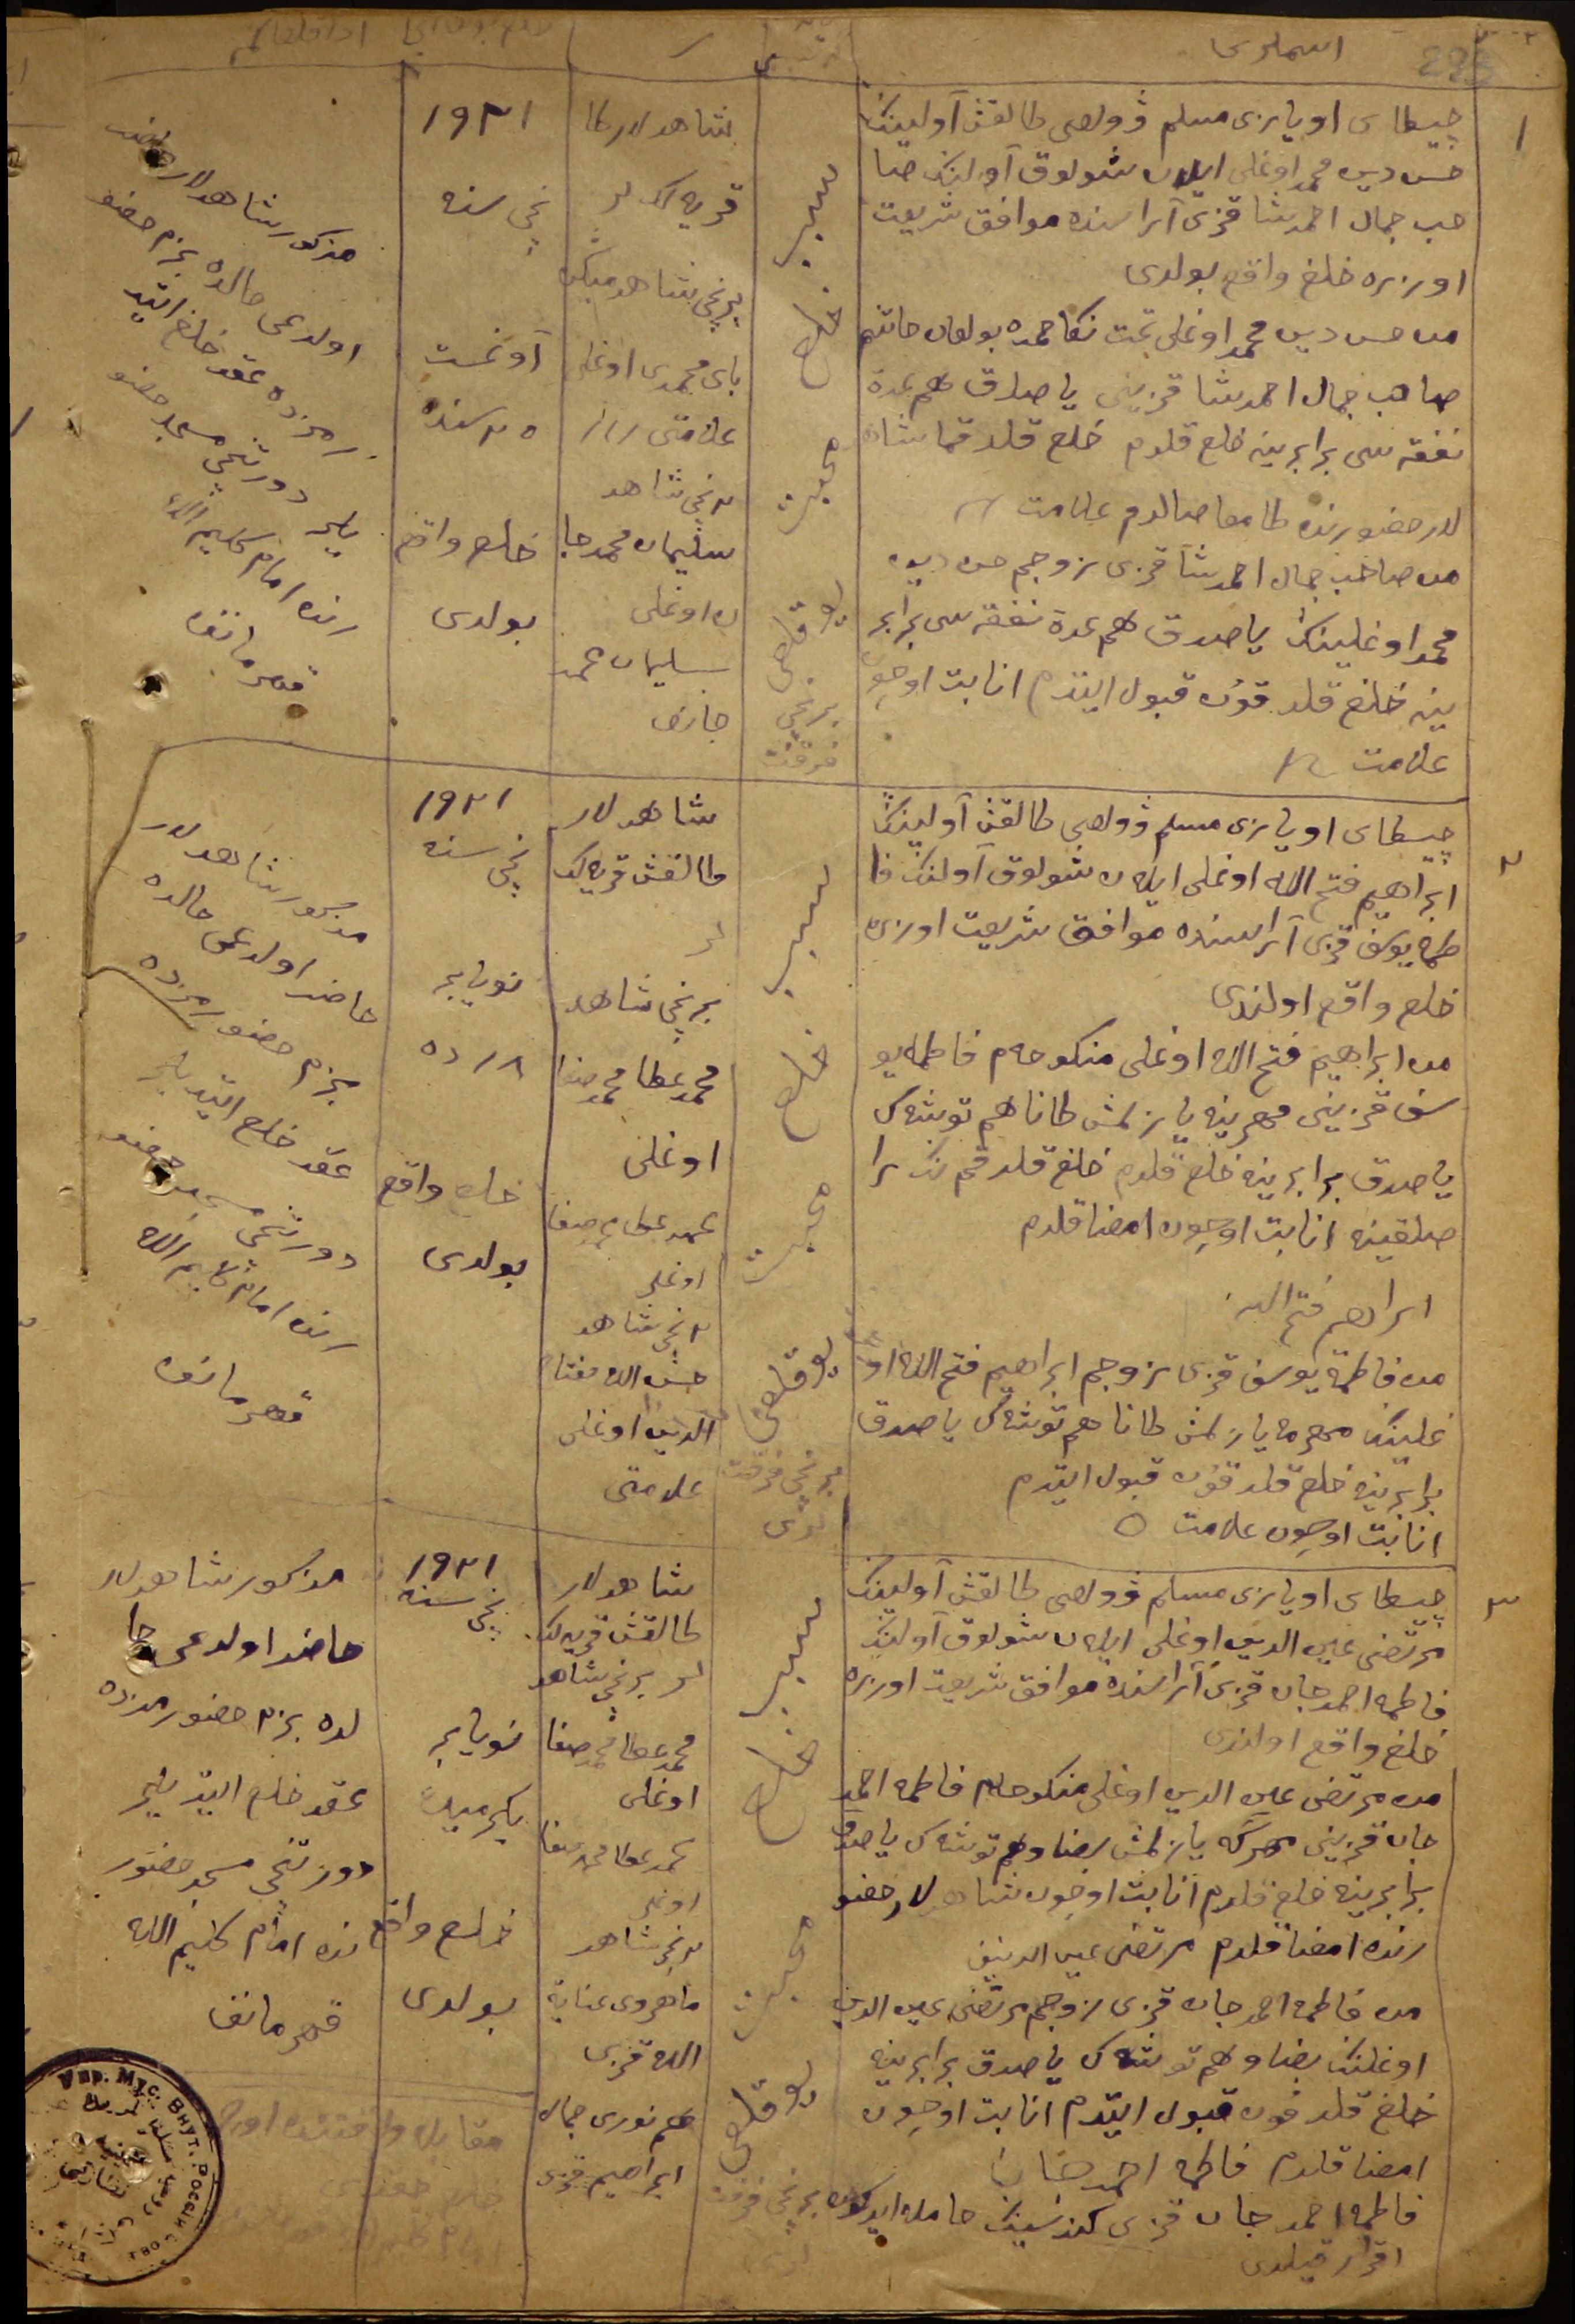 اسملری
223
١
چیسطای اویازی مسلم ڤولصی طالقش آولینڭ
حسن دین محمد اوغلی ایلان شولوق آولنڭ صا
حب جمال احمدشا قزی آراسنده موافق شریعت
اوزره خلع واقع بولدی
من حسن دین محمد اوغلی تحت نکاحمده بولغان خاتنم
صاحب جمال احمدشا قزینی یاصداق هم عدة
نفقه سی برابرینه خلع قلدم خلع قلدقما شاه
لدر حضورنده طامغا صالدم علامت
من صاحب جمال احمدشا قزی زوجم حسن دین
محمد اوغلینڭ یاصدق هم عدة نفقه سی برابر
ینه خلع قلدقون قبول ایتدم اثابت اوچون
علامت
سبب خلع
محبت
یوقلعی
برنچی
فرقت
شاهدلار طا
قریه
برنچی شاهد
بای محمدی اوغلی
علامتی
٢نچی شاهد
سلیمان محمدجا
ن اوغلی
سلیمان محمد
جانف
١٩٢١
نچی سنه
آوغست
٢٥ سنده
خلع واقع
بولدی
مذکور شاهدلار حاضر
اولدغی حالده بزم حضو
رمزده عقد خلع ایتد
یلر دورتنچی مسجد حضو
رنده امام کلیم الله
قهرمانف
٢
چیسطای اویازی مسلم ڤولصی طالقش آولینڭ
ابراهیم فتح الله اوغلی ایله ن شولوق آولنڭ فا
طمه یوسف قزی آراسنده موافق شریعت اوزره
خلع واقع اولندی
من ابراهیم فتح الله اوغلی منکوحه م فاطمه یو
سف قزینی مهرینه یازلمش طانا هم توشه ک
یاصدق برابرینه خلع قلدم خلع قلدقم نڭ را
صلقینه اثابت اوچون امضا قلدم
ابراهیم فتح الله
من فاطمه یوسف قزی زوجم ابراهیم فتح الله او
غلینڭ مهرمه یازلمش طانا هم توشه ک یاصدق
برابرینه خلع قلدقون قبول ایتدم
اثابت اوچون علامت
سبب خلع
محبت
یوقلعی
برنچی فرقت
شاهدلار
طالقش قریه لک
لر
برنچی شاهد
محمد عطا محمد صفا
اوغلی
محمد عطا محمد صفا
اوغلی
٢نچی شاهد
حسن الله مفتاح
الدین اوغلی
علامتی
١٩٢١
نچی سنه
نویابر
١٨ ده
خلع واقع
بولدی
مذکور شاهدلر
حاضر اولدغی حالده
بزم حضورمزده
عقد خلع ایتدیلر
دورتنچی مسجد حضو
رنده امام کلیم الله
قهرمانف
٣
چیسطای اویازی مسلم ڤولصی طالقش آولینڭ
مرتضی عین الدین اوغلی ایله ن شولوق آولنڭ
فاطمه احمدجان قزی آراسنده موافق شریعت اوزره
خلع واقع اولندی
من مرتضی عین الدین اوغلی منکوحه م فاطمه احمد
جان قزینی مهرگه یازلمش بضاو هم توشه ک یاصدق
برابرینه خلع قلدم اثابت اوچون شاهدلار حضو
رنده امضا قلدم مرتضی عین الدینف
من فاطمه احمدجان قزی زوجم مرتضی عین الدین
اوغلنڭ بضاو هم توشه ک یاصدق برابرینه
خلع قلدقون قبول ایتدم اثابت اوچون
امضا قلدم فاطمه احمدجان
فاطمه احمدجان قزی کندسینڭ حامله ایدکون
اقرار قیلدی
سبب خلع
محبت
یوقلعی
برنچی فرقت
شاهدلار
طالقش قریه لک
لر برنچی شاهد
محمد عطا محمد صفا
اوغلی
محمد عطا محمد صفا
اوغلی
٢نچی شاهد
ماهروی عنایة
الله قزی
هم نوری جمال
ابراهیم قزی
١٩٢١
نچی سنه
نویابر
یکرمیده
خلع واقع
بولدی
مذکور شاهدلار
حاضر اولدغی حا
لده بزم حضورمزده
عقد خلع ایتدیلر
دورتنچی مسجد حضور
نده امام کلیم الله
قهرمانف
Упр. Мус. Внут. России